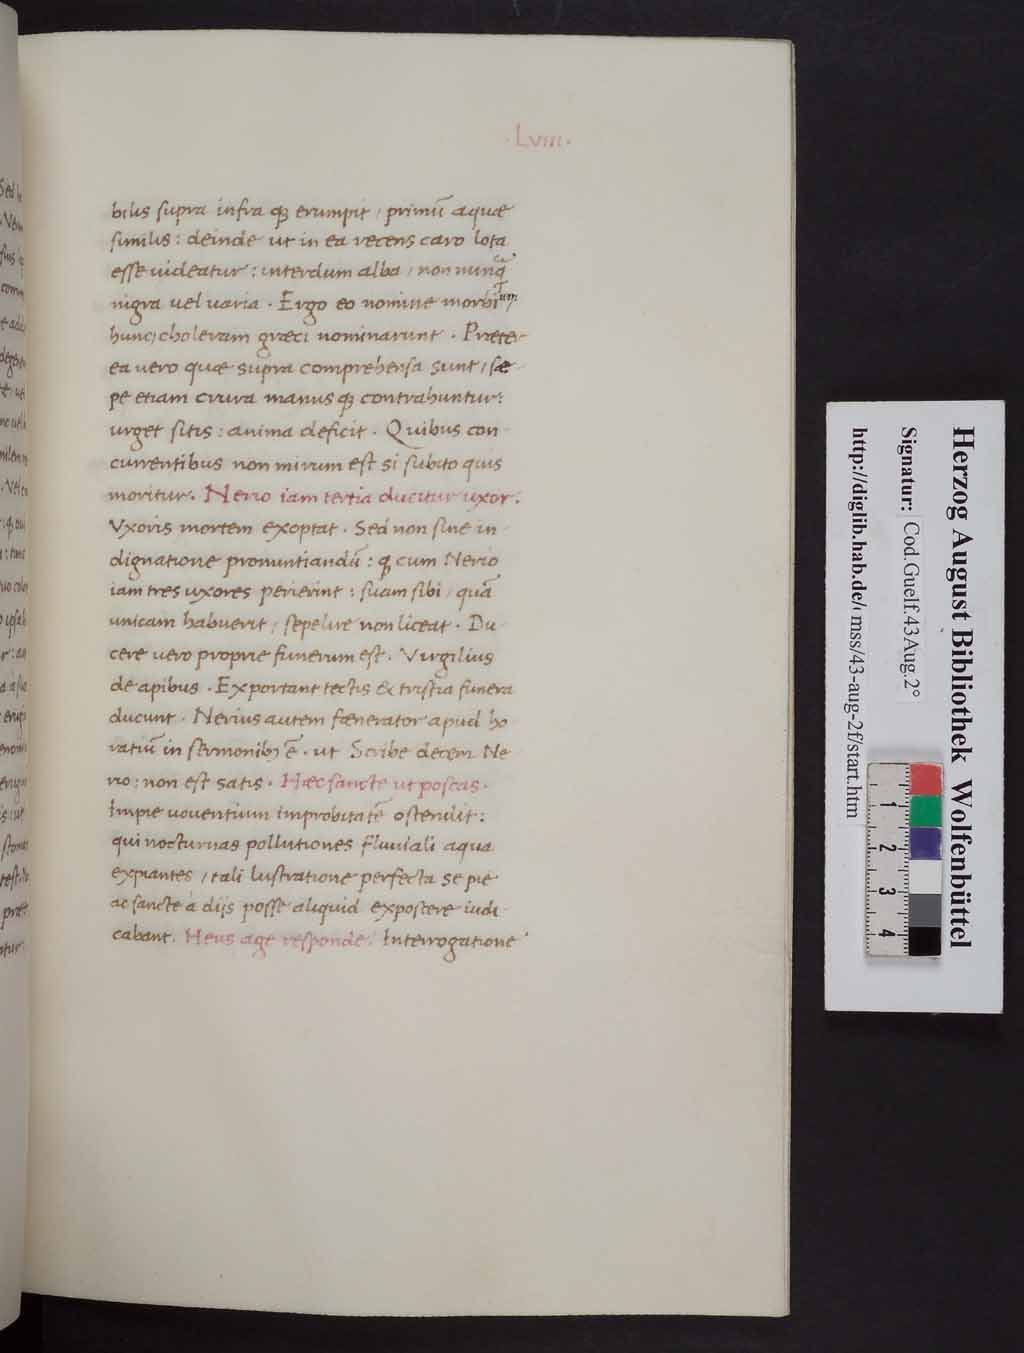 · Lviii ·
bilis supra infra qꝫ erumpit / primū aquæ
similis : deinde ut in ea recens caro lota
esse uideatur : interdum alba / non nunq̃
nigra uel uaria · Ergo eo nomine morbi um
hunc / choleram græci nominarunt · Præter-
ea uero quæ supra comprehensa sunt / sæ-
pe etiam crura manus qꝫ contrahuntur :
urget sitis : anima deficit · Quibus con-
currentibus non mirum est si subito quis
moritur · Nerio iam tertia ducitur uxor :
Vxoris mortem exoptat · Sed non sine in-
dignatione pronuntiandū : q cum Nerio
iam tres uxores perierint : suam sibi / quā
unicam habuerit / sepelire non liceat · Du-
cere uero proprie funerum est · Virgilius
de apibus · Exportant tectis & tristia funera
ducunt · Nerius autem fænerator apud ho-
ratiū in sermonibꝫ ē · ut Scribe decem Ne-
rio : non est satis · Hæc sancte ut poscas ·
Impie uouentium improbitatē ostendit :
qui nocturnas pollutiones fluuiali aqua
expiantes / tali lustratione perfecta se pie
ac sancte à dijs posse aliquid exposcere iudi-
cabant · Heus age responde · Interrogatione
Herzog August Bibliothek Wolfenbüttel
Signatur: Cod.Guelf.43Aug.2°
http://diglib.hab.de/mss/43-aug-2f/start.htm
1
2
3
4